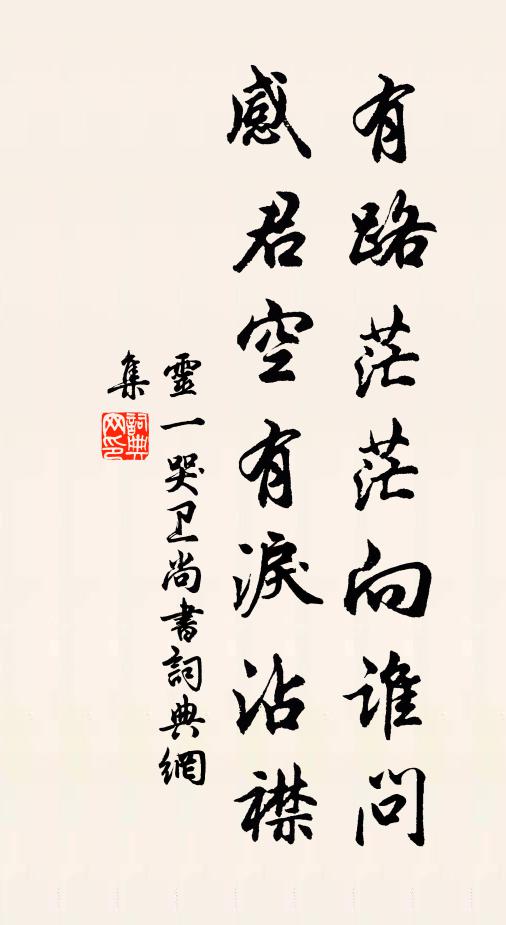 有路茫茫向谁问
感君空有淚沾襟
靈一哭卫尚書詞典網
集
詞典
网印